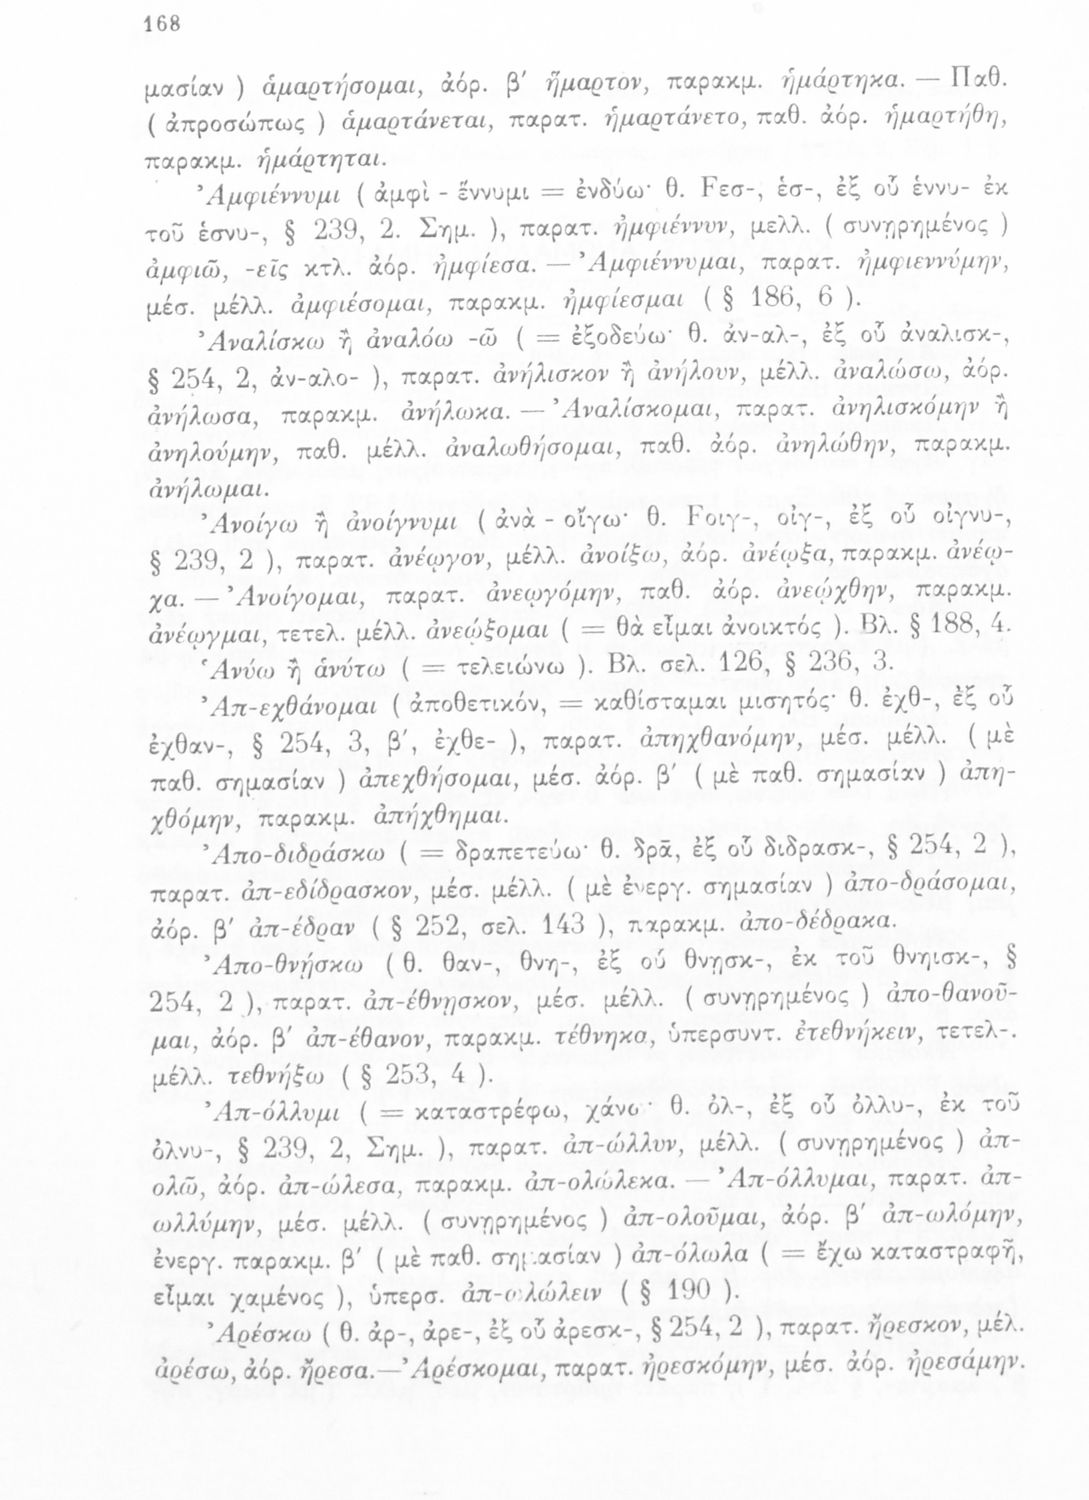 168
μασίαν ) ἁμαρτήσομαι, ἀόρ. β′ ἥμαρτον, παρακμ. ἡμάρτηκα. — Παθ.
( ἀπροσώπως ) ἁμαρτάνεται, παρατ. ἡμαρτάνετο, παθ. ἀόρ. ἡμαρτήθη,
παρακμ. ἡμάρτηται.
Ἀμφιέννυμι ( ἀμφὶ - ἕννυμι = ἐνδύω· θ. Fεσ-, ἑσ-, ἐξ οὗ ἑννυ- ἐκ
τοῦ ἑσνυ-, § 239, 2. Σημ. ), παρατ. ἠμφιέννυν, μελλ. ( συνῃρημένος )
ἀμφιῶ, -εῖς κτλ. ἀόρ. ἠμφίεσα. — Ἀμφιέννυμαι, παρατ. ἠμφιεννύμην,
μέσ. μέλλ. ἀμφιέσομαι, παρακμ. ἠμφίεσμαι ( § 186, 6 ).
Ἀναλίσκω ἢ ἀναλόω -ῶ ( = ἐξοδεύω· θ. ἀν-αλ-, ἐξ οὗ ἀναλισκ-,
§ 254, 2, ἀν-αλο- ), παρατ. ἀνήλισκον ἢ ἀνήλουν, μέλλ. ἀναλώσω, ἀόρ.
ἀνήλωσα, παρακμ. ἀνήλωκα. — Ἀναλίσκομαι, παρατ. ἀνηλισκόμην ἢ
ἀνηλούμην, παθ. μέλλ. ἀναλωθήσομαι, παθ. ἀόρ. ἀνηλώθην, παρακμ.
ἀνήλωμαι.
Ἀνοίγω ἢ ἀνοίγνυμι ( ἀνὰ - οἴγω· θ. Fοιγ-, οἰγ-, ἐξ οὗ οἰγνυ-,
§ 239, 2 ), παρατ. ἀνέῳγον, μέλλ. ἀνοίξω, ἀόρ. ἀνέῳξα, παρακμ. ἀνέῳ-
χα. — Ἀνοίγομαι, παρατ. ἀνεῳγόμην, παθ. ἀόρ. ἀνεῴχθην, παρακμ.
ἀνέῳγμαι, τετελ. μέλλ. ἀνεῴξομαι ( = θὰ εἶμαι ἀνοικτός ). Βλ. § 188, 4.
Ἁνύω ἢ ἁνύτω ( = τελειώνω ). Βλ. σελ. 126, § 236, 3.
Ἀπ-εχθάνομαι ( ἀποθετικόν, = καθίσταμαι μισητός· θ. ἐχθ-, ἐξ οὗ
ἐχθαν-, § 254, 3, β′, ἐχθε- ), παρατ. ἀπηχθανόμην, μέσ. μέλλ. ( μὲ
παθ. σημασίαν ) ἀπεχθήσομαι, μέσ. ἀόρ. β′ ( μὲ παθ. σημασίαν ) ἀπη-
χθόμην, παρακμ. ἀπήχθημαι.
Ἀπο-διδράσκω ( = δραπετεύω· θ. δρᾱ, ἐξ οὗ διδρασκ-, § 254, 2 ),
παρατ. ἀπ-εδίδρασκον, μέσ. μέλλ. ( μὲ ἐνεργ. σημασίαν ) ἀπο-δράσομαι,
ἀόρ. β′ ἀπ-έδραν ( § 252, σελ. 143 ), παρακμ. ἀπο-δέδρακα.
Ἀπο-θνῄσκω ( θ. θαν-, θνη-, ἐξ οὗ θνῃσκ-, ἐκ τοῦ θνηισκ-, §
254, 2 ), παρατ. ἀπ-έθνῃσκον, μέσ. μέλλ. ( συνῃρημένος ) ἀπο-θανοῦ-
μαι, ἀόρ. β′ ἀπ-έθανον, παρακμ. τέθνηκα, ὑπερσυντ. ἐτεθνήκειν, τετελ-.
μέλλ. τεθνήξω ( § 253, 4 ).
Ἀπ-όλλυμι ( = καταστρέφω, χάνω · θ. ὀλ-, ἐξ οὗ ὀλλυ-, ἐκ τοῦ
ὀλνυ-, § 239, 2, Σημ. ), παρατ. ἀπ-ώλλυν, μέλλ. ( συνῃρημένος ) ἀπ-
ολῶ, ἀόρ. ἀπ-ώλεσα, παρακμ. ἀπ-ολώλεκα. — Ἀπ-όλλυμαι, παρατ. ἀπ-
ωλλύμην, μέσ. μέλλ. ( συνῃρημένος ) ἀπ-ολοῦμαι, ἀόρ. β′ ἀπ-ωλόμην,
ἐνεργ. παρακμ. β′ ( μὲ παθ. σημασίαν ) ἀπ-όλωλα ( = ἔχω καταστραφῆ,
εἶμαι χαμένος ), ὑπερσ. ἀπ-ωλώλειν ( § 190 ).
Ἀρέσκω ( θ. ἀρ-, ἀρε-, ἐξ οὗ ἀρεσκ-, § 254, 2 ), παρατ. ἤρεσκον, μέλ.
ἀρέσω, ἀόρ. ἤρεσα.— Ἀρέσκομαι, παρατ. ἠρεσκόμην, μέσ. ἀόρ. ἠρεσάμην.